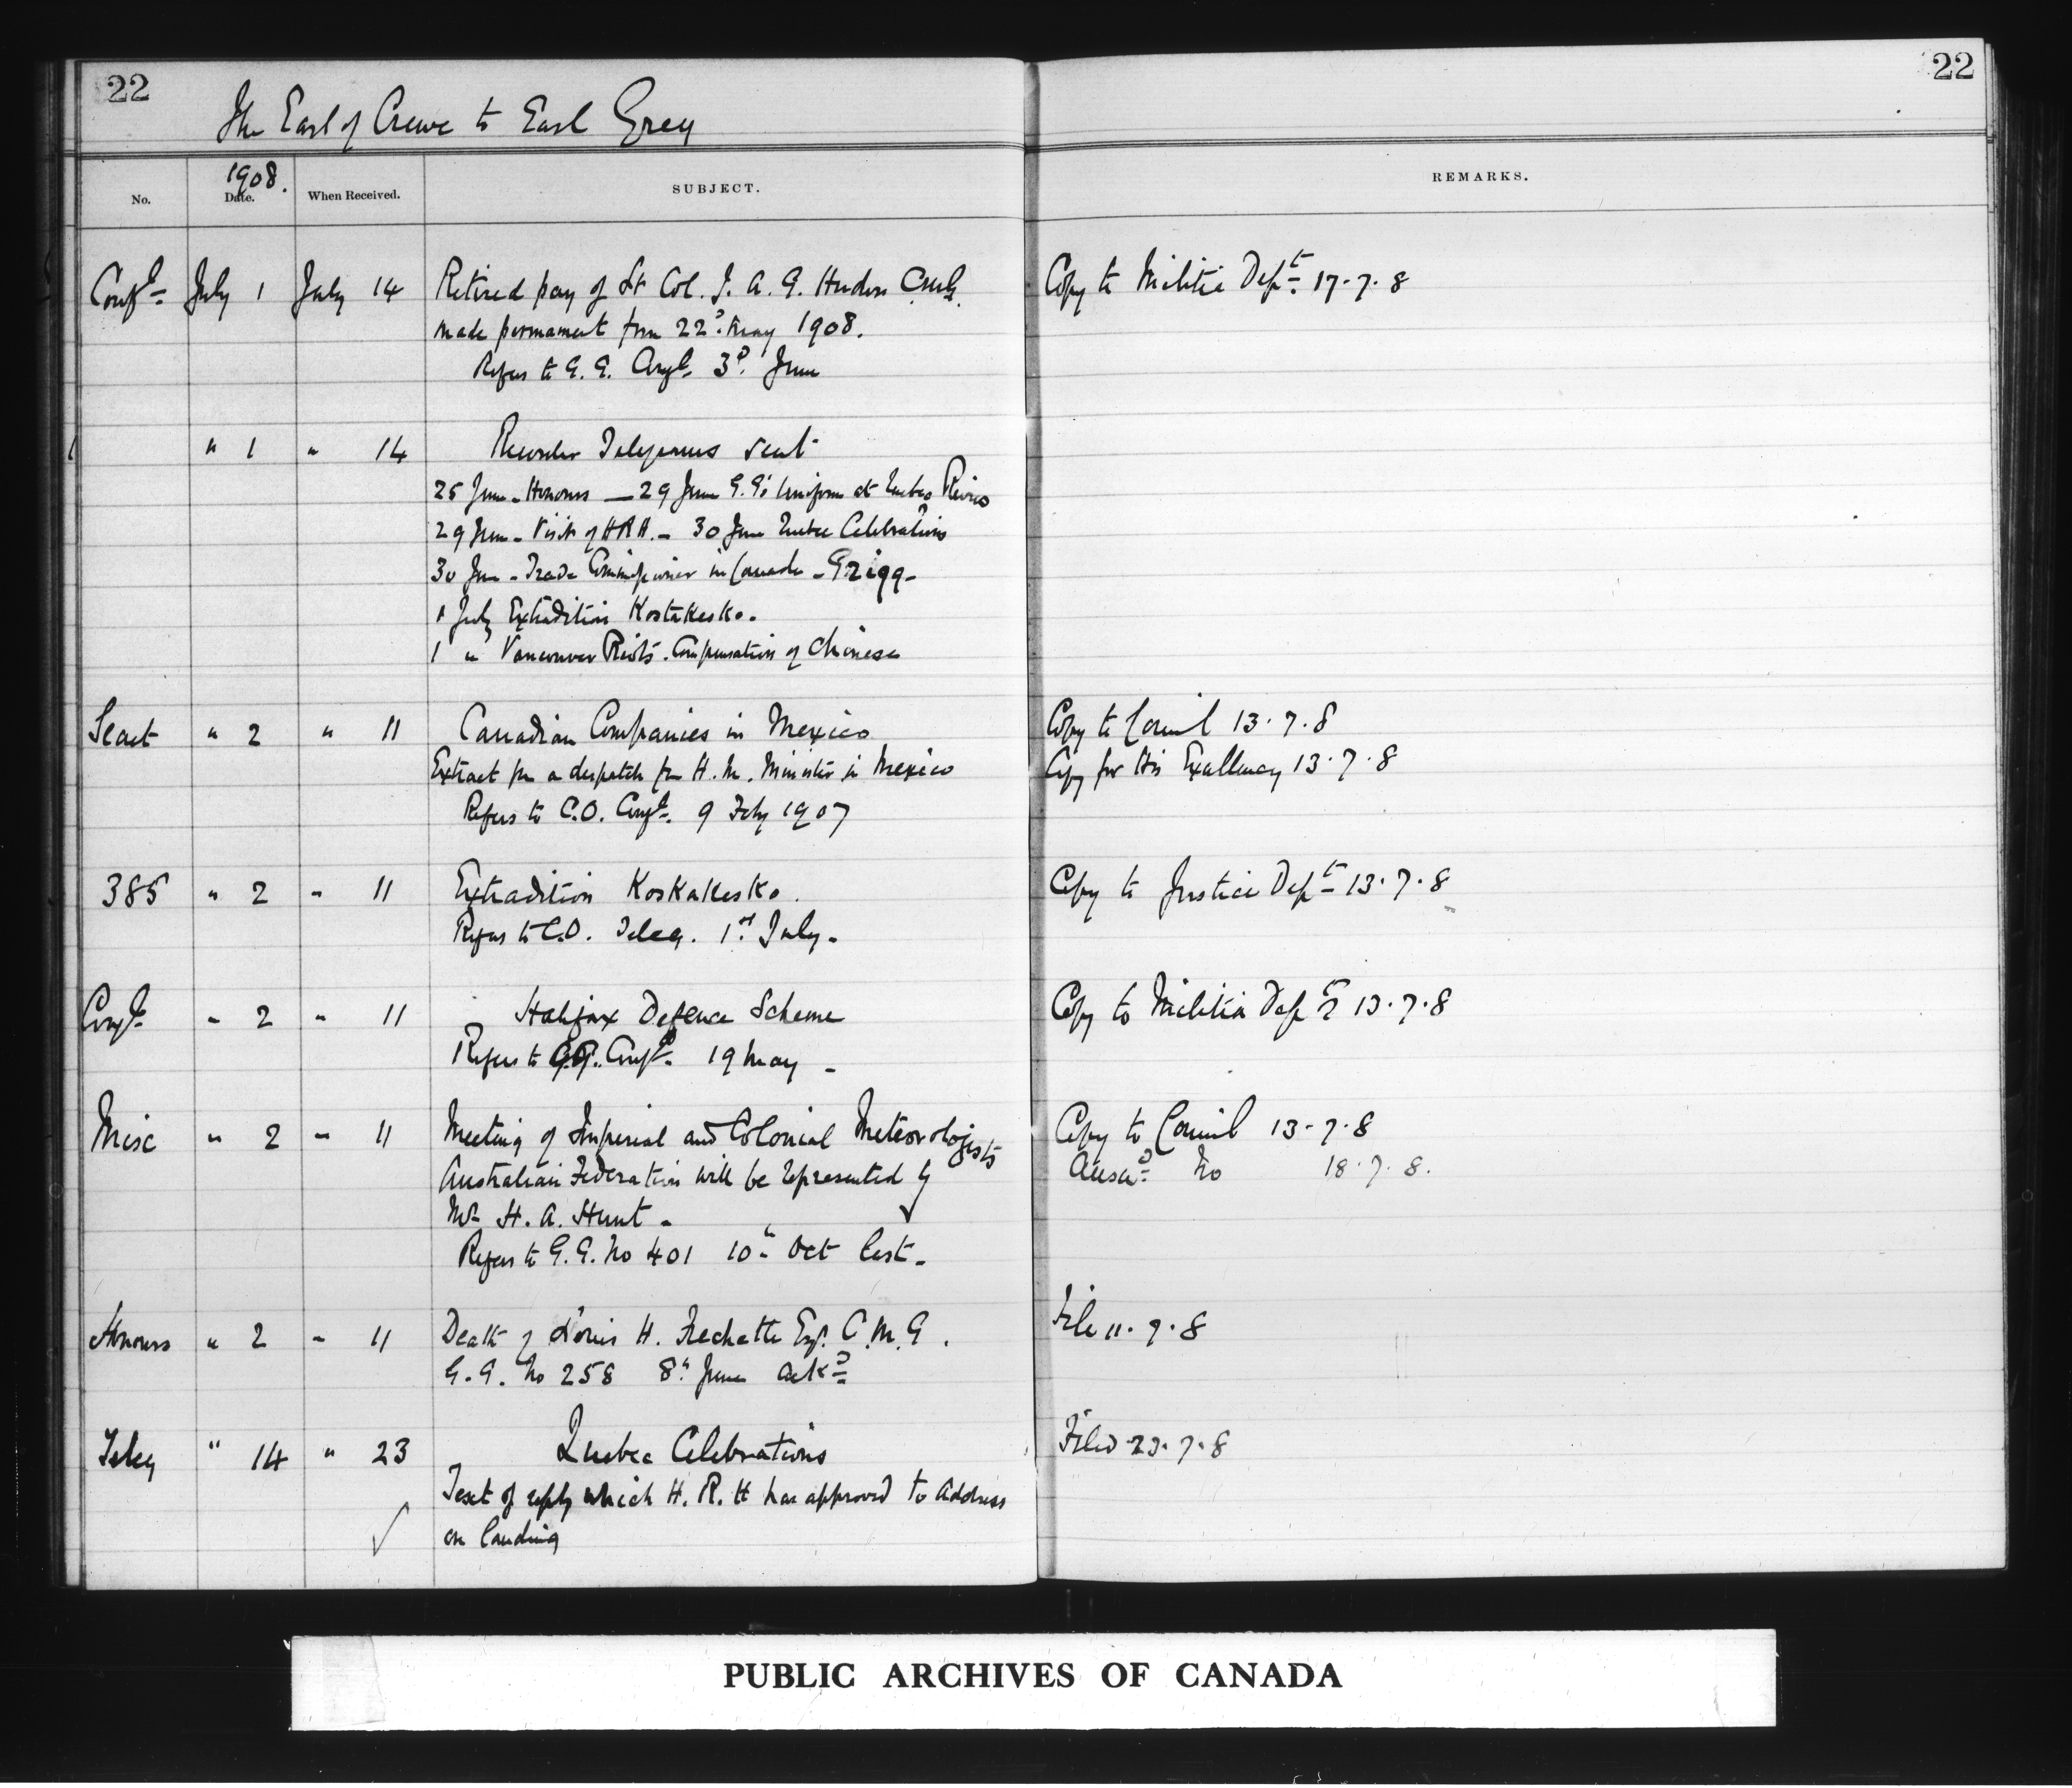 22
22
The Earl of Crewe to Earl Grey
1908.
No. Date. When Received. SUBJECT. REMARKS.
Confl July 1 July 14 Retired pay of Lt Col. J. A. G. Hudon C.M.G. Copy to Militia Dept 17.7.8
made permanent from 22d May 1908.
Refers to G.G. Confl 3d June
" 1 " 14 Recorder Telegrams sent
25 June - Honours - 29 June G.G's Uniform at Quebec Review
29 June - Visit of HRH. - 30 June Quebec Celebrations
30 June - Trade Commissioner in Canada - Grigg -
1 July Extradition Kostakesko.
1 " Vancouver Riots. Compensation of Chinese
Secret " 2 " 11 Canadian Companies in Mexico Copy to Council 13.7.8
Extract fm a despatch fm H.M. Minister in Mexico Copy for His Excellency 13.7.8
Refers to C.O. Confl. 9 Feby 1907
385 " 2 " 11 Extradition Koskakesko. Copy to Justice Dept 13.7.8
Refers to C.O. Teleg. 1st July -
Confl " 2 " 11 Halifax Defence Scheme Copy to Militia Dept 13.7.8
Refers to G.G. Confl. 19 May -
Misc " 2 " 11 Meeting of Imperial and Colonial Meteorologists Copy to Council 13.7.8
Australian Federation will be represented by Answd No 18.7.8.
Mr H. A. Hunt -
Refers to G.G. No 401 10th Oct last -
Honours " 2 " 11 Death of Louis H. Frechette Esq. C.M.G. File 11.7.8
G.G. No 258 8th June ackd
Teleg " 14 " 23 Quebec Celebrations Filed 23.7.8
Text of reply which H.R.H has approved to Address
on landing
PUBLIC ARCHIVES OF CANADA